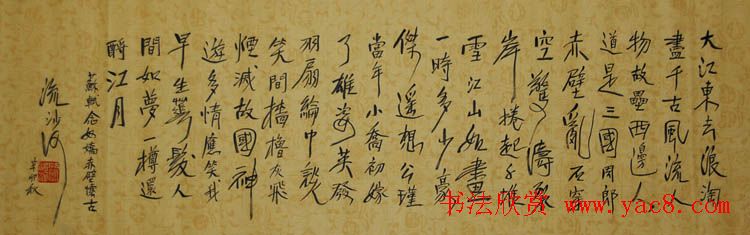 大江東去浪淘
盡千古風流人
物故壘西邊人
道是三國周郎
赤壁亂石穿
空驚濤裂
岸捲起千堆
雪江山如畫
一時多少豪
傑遥想公瑾
當年小喬初嫁
了雄姿英發
羽扇綸巾談
笑間檣櫓灰飛
煙滅故國神
遊多情應笑我
早生華髮人
間如夢一樽還
酹江月
蘇軾念奴嬌赤壁懷古
流沙河
辛卯秋
书法欣赏 www.yac8.com